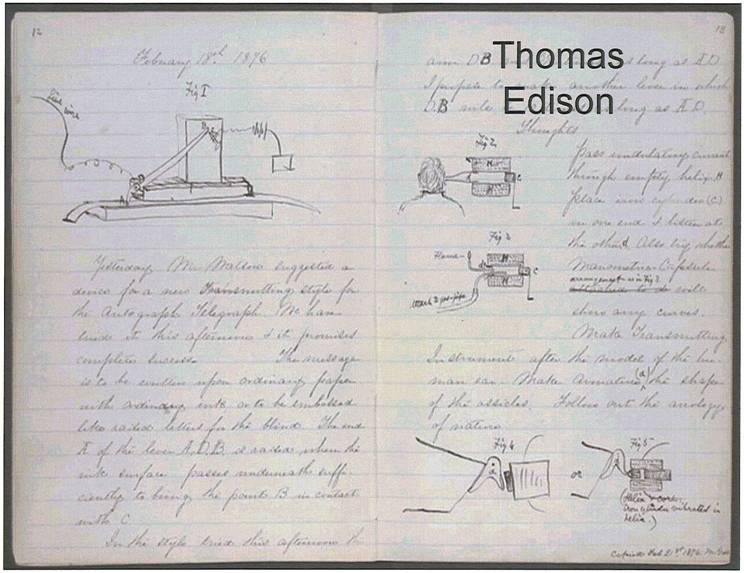 12
February 18th 1876
Fig 1
line wire
Yesterday Mr Watson suggested a
device for a new Transmitting style for
the Autograph Telegraph. We have
tried it this afternoon & it promises
complete success. The message
is to be written upon ordinary paper
with ordinary ink or to be embossed
like raised letters for the blind. The end
A of the lever A.D.B. is raised when the
ink surface passes underneath suffi-
ciently to bring the point B in contact
with C
In the style tried this afternoon the
13
arm DB as long as A D
I propose to make another lever in which
D.B will long as A.D.
Thomas
Edison
Thoughts
Fig 2
H
C
H
Pass undulating current
through empty helix. H
place iron cylinder (C)
in one end & listen at
the other. Also try whether
Manometric Capsule
arrangement in fig 3
will
show any curves.
Fig 3
Flame
H
C
H
gas-pipe
Make Transmitting
Instrument after the model of the hu-
man ear. Make Armature (a) the shape
of the ossicles. Follow out the analogy
of nature
Fig 4
or
Fig 5
(Helix & core.
Iron cylinder vibrated in
helix.)
Copied Feb 21st 1876